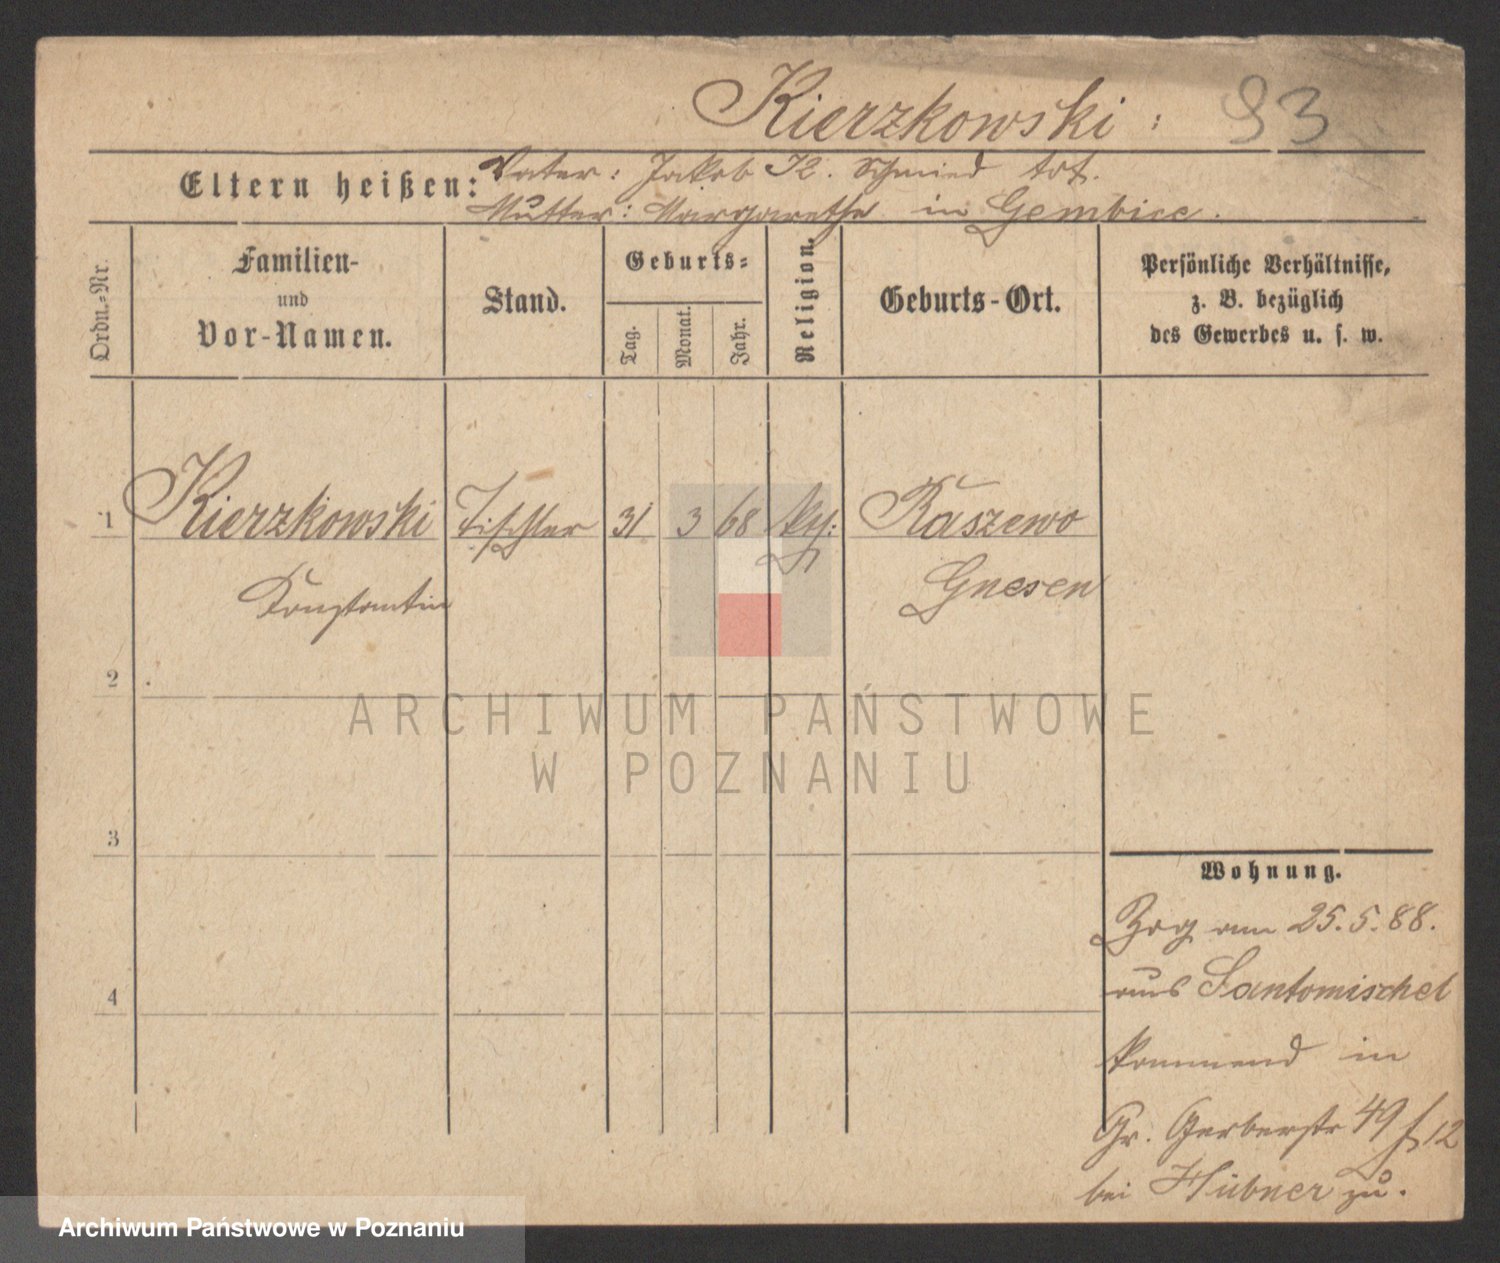 Kierzkowski : 93
Eltern heißen: Vater: Jakob K. Schmied tot.
Mutter: Margarethe in Gembice.
Ordn.-Nr.
Familien-
und
Vor-Namen.
Stand.
Geburts-
Tag.
Monat.
Jahr.
Religion.
Geburts-Ort.
Persönliche Verhältnisse,
z. B. bezüglich
des Gewerbes u. s. w.
1 Kierzkowski Tischler 31 3 68 kth: Raszewo
Konstantin Gnesen
2
ARCHIWUM PAŃSTWOWE
W POZNANIU
3
4
Wohnung.
Zog am 25.5.88.
aus Santomischel
kommend in
Gr. Gerberstr 49 12
bei Hübner zu.
Archiwum Państwowe w Poznaniu